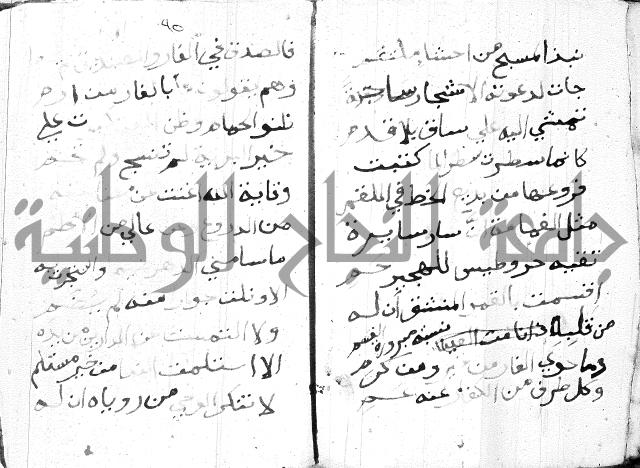 نبذ المسبح من احشاء ملتقم
جات لدعوته الاشجار ساجدة
تمشي اليه علي ساق بلا قدم
كانما سطرت سطرا لما كتبت
فروعها من بديع الخط في اللقم
مثل الغمامة ان سار سايرة
تقيه حر وطيس للهجير حم
اقسمت بالقمر المنشق ان له
من قلبه نسبة مبرورة القسم
وما حوي الغار من خير ومن كرم
وكل طرف من الكفار عنه عم
٩٥
فالصدق في الغار والصديق لم
وهم يقولون ما بالغار من ارم
ظنوا الحمام وظنوا علي
خير البرية لم تنسج ولم تحم
وقاية الله اغنت عن
من الدروع وعن عالي من الاطم
ما سامني الدهر
الا ونلت جوارا منه لم يضم
ولا التمست غني الدارين من يده
الا استلمت الندا من خير مستلم
لا تنكر الوحي من روياه ان له
جامعة النجاح الوطنية